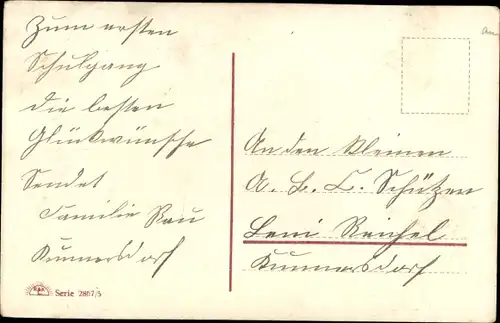 Zum ersten
Schulgang
die besten
Glückwünsche
Sendet
Familie Rau
Kunnersdorf
Serie 2867/5
An den Kleinen
A. B. C. Schützen
Leni Reichel
Kunnersdorf